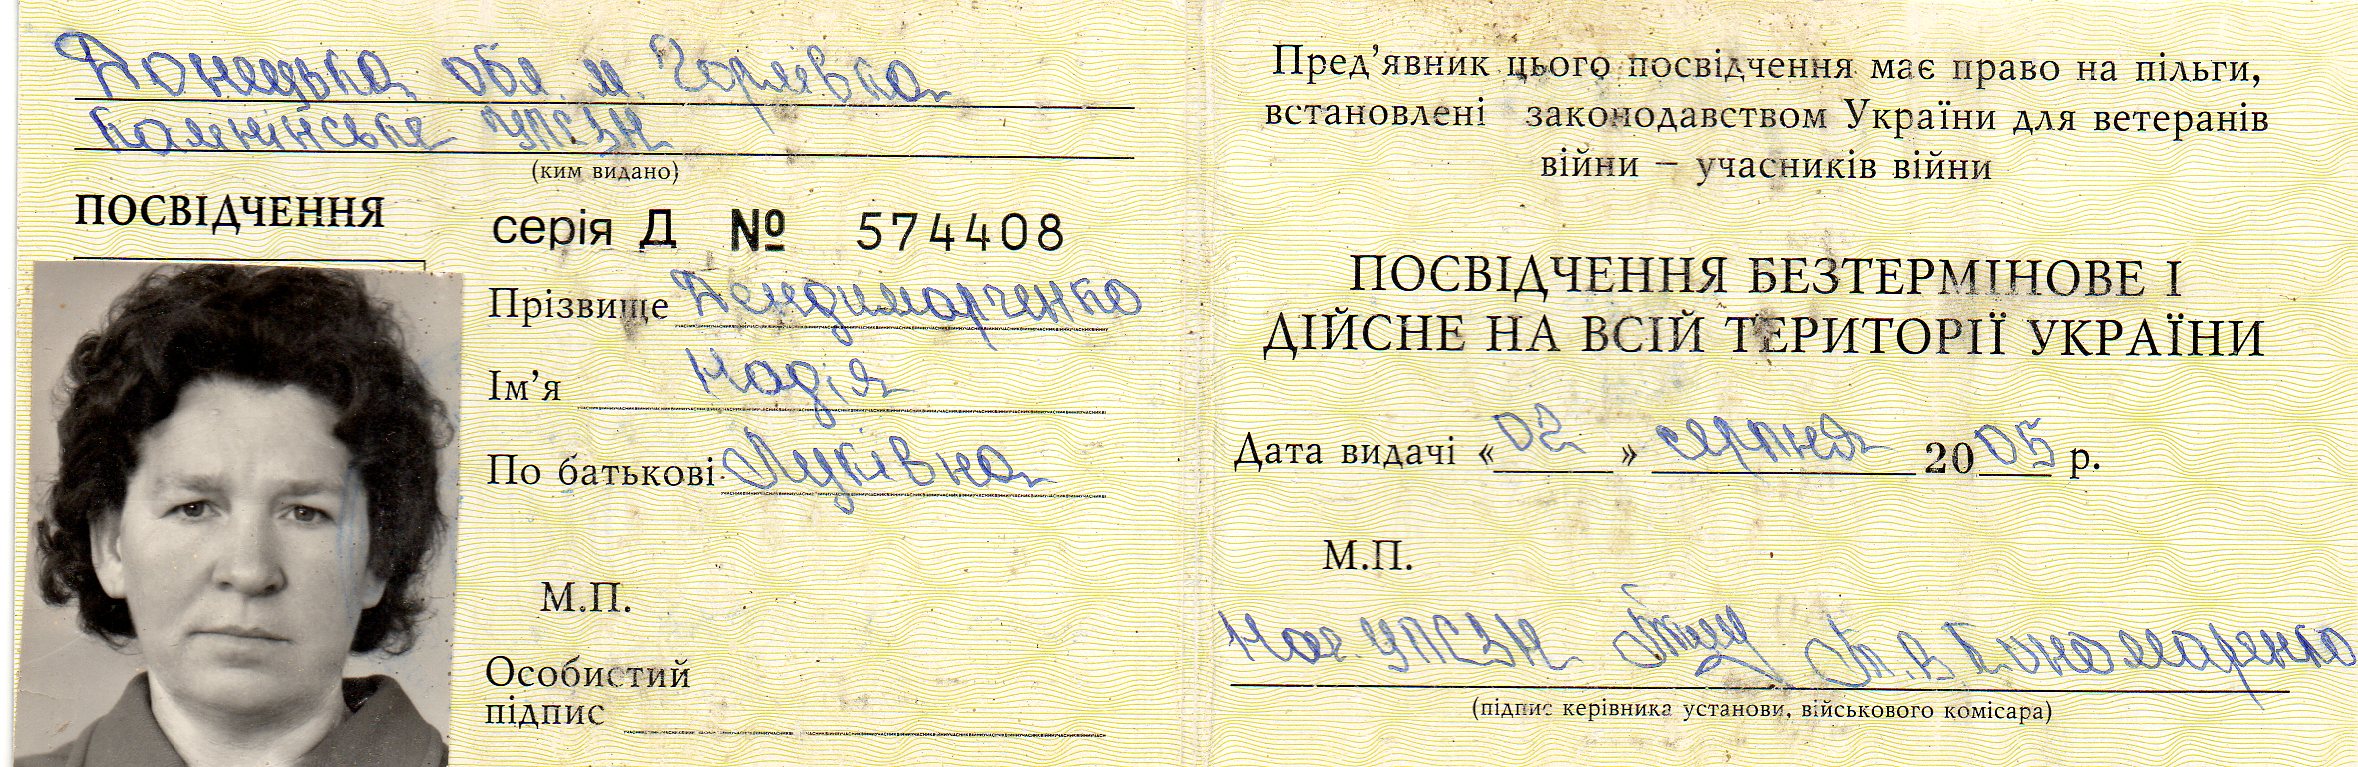 Донецька обл. м. Горлівка
Калінінське УПСЗН
(ким видано)
ПОСВІДЧЕННЯ
серія Д № 574408
Прізвище
Ім’я Надія
По батькові Луківна
М.П.
Особистий
підпис
Пред’явник цього посвідчення має право на пільги,
встановлені законодавством України для ветеранів
війни – учасників війни
ПОСВІДЧЕННЯ БЕЗТЕРМІНОВЕ І
ДІЙСНЕ НА ВСІЙ ТЕРИТОРІЇ УКРАЇНИ
Дата видачі «02» серпня 2005 р.
М.П.
Нач. УПСЗН Т.В.
(підпис керівника установи, військового комісара)